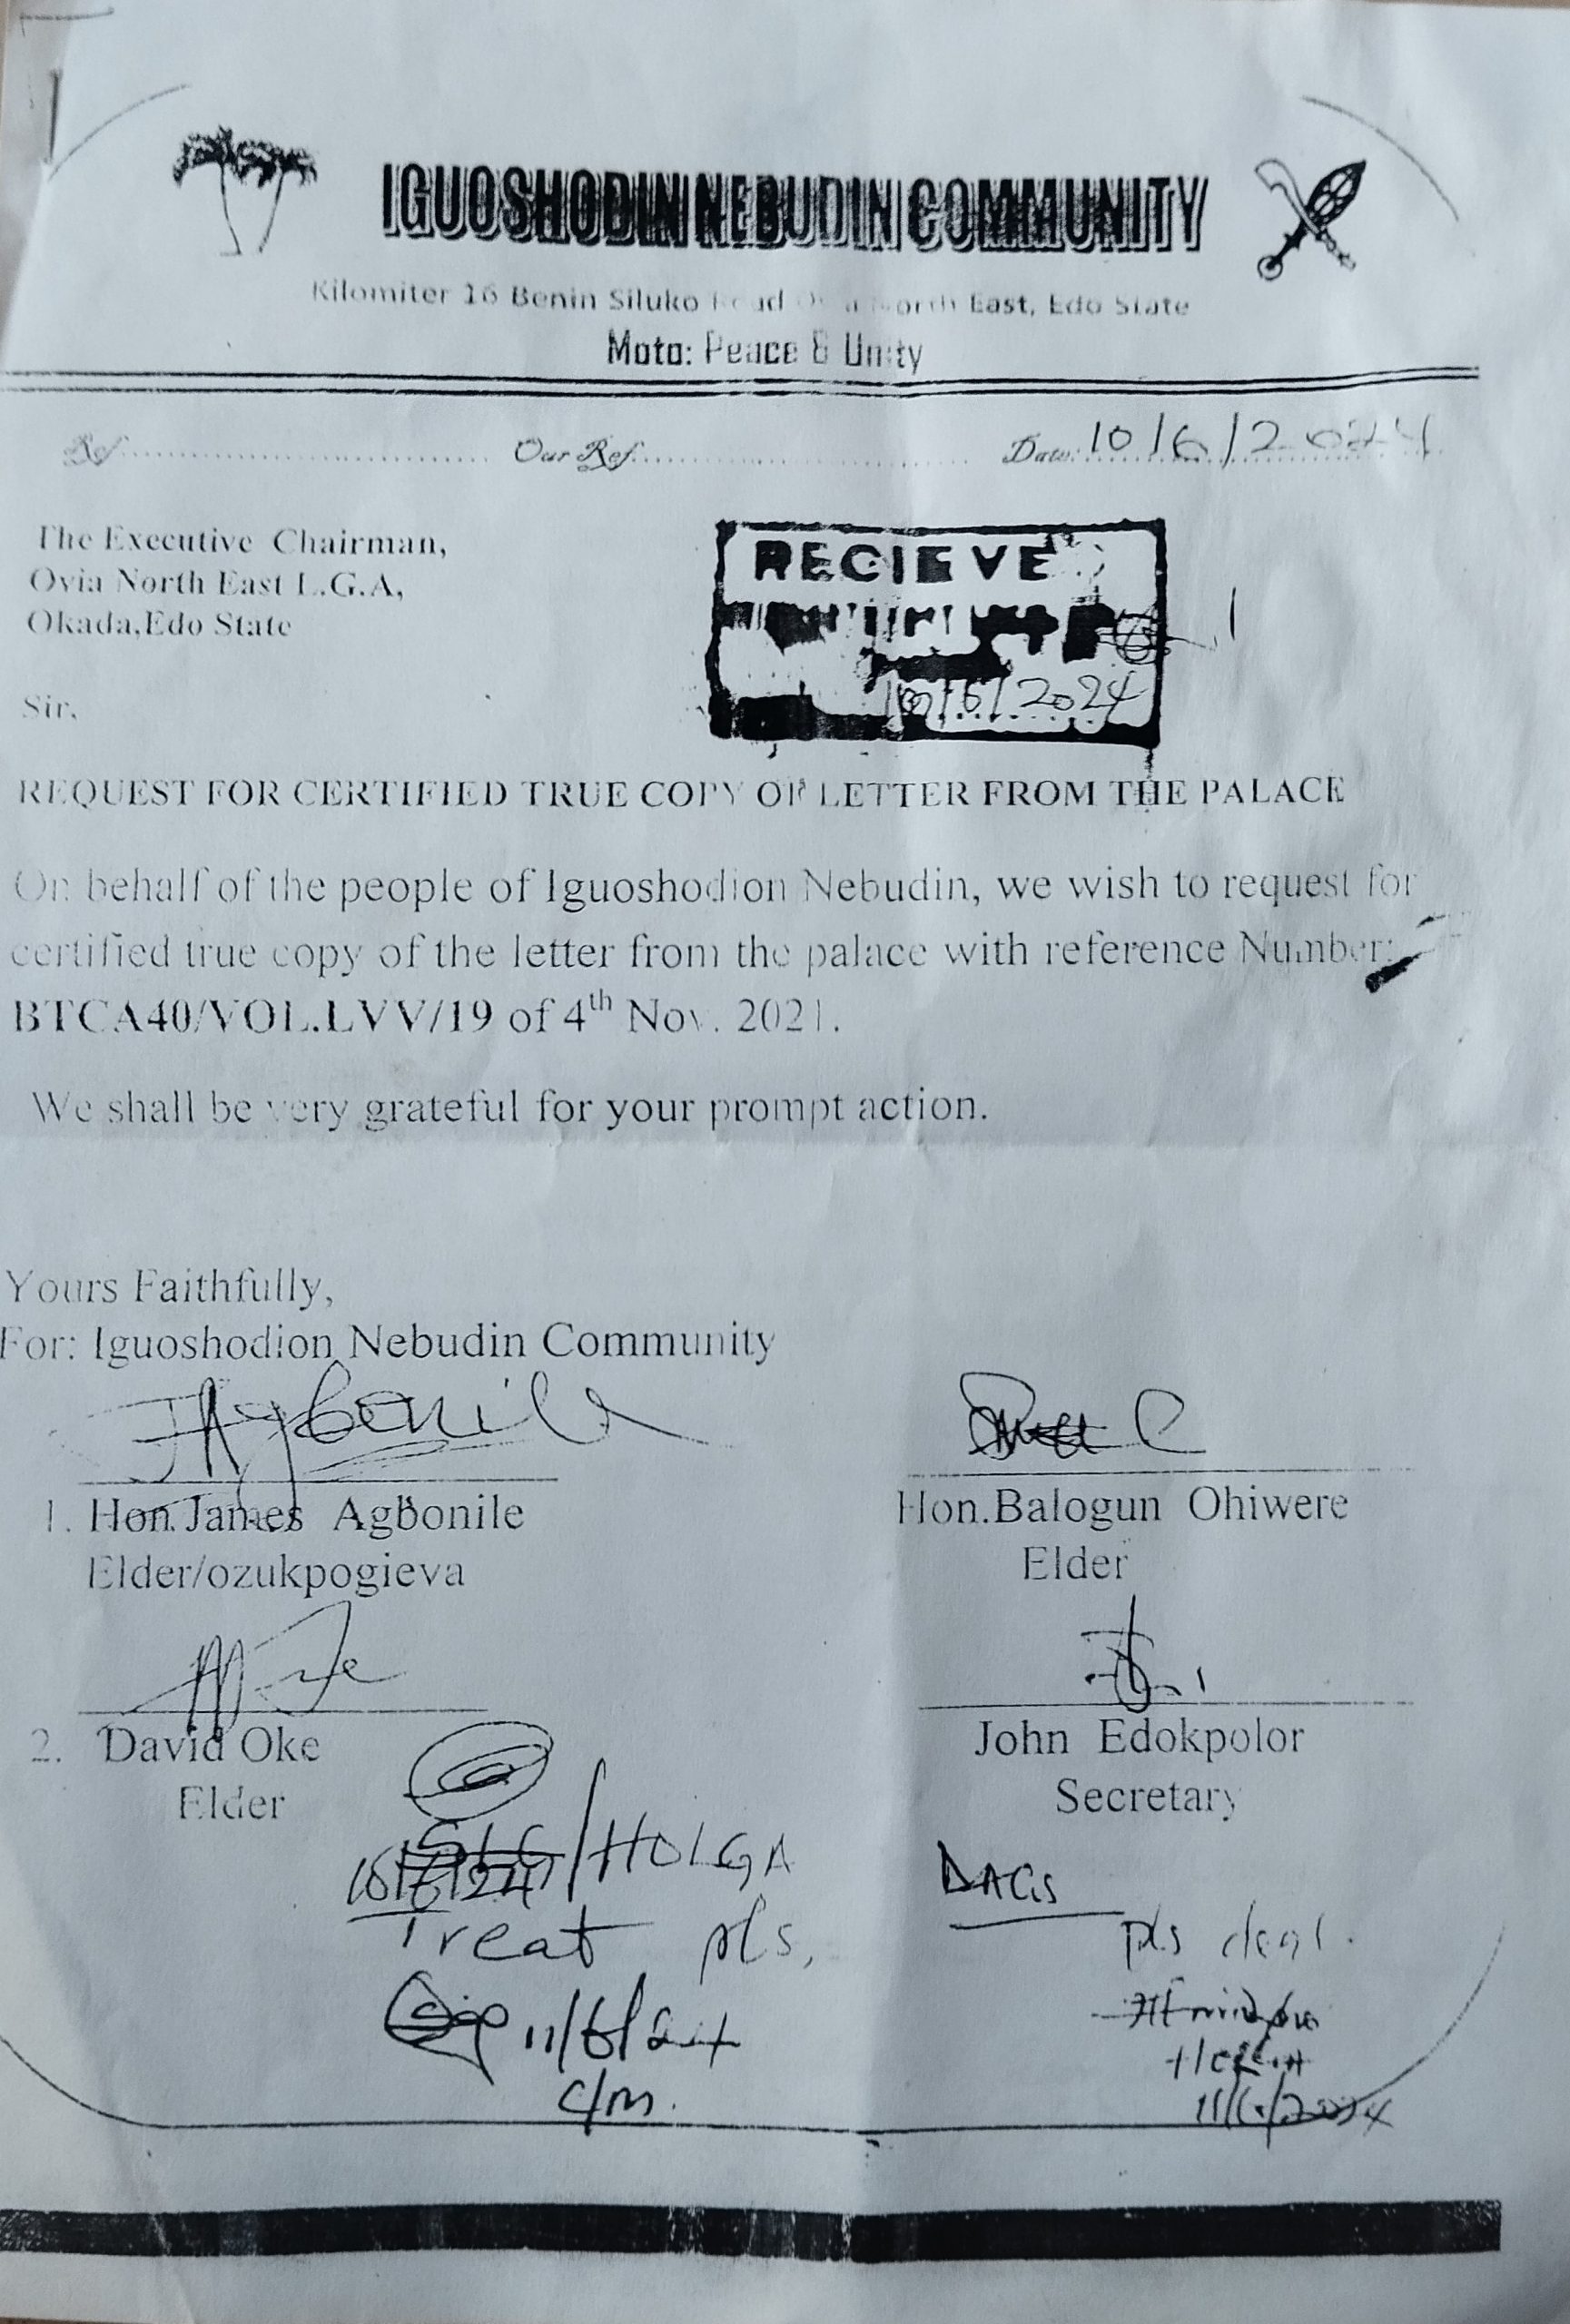 IGUOSHODIN NEBUDIN COMMUNITY
Kilomiter 16 Benin Siluko Road Ovia North East, Edo State
Moto: Peace & Unity
Ref. Our Ref. Date: 10/6/2024
The Executive Chairman,
Ovia North East L.G.A,
Okada,Edo State
RECIEVE
10/6/2024
Sir,
REQUEST FOR CERTIFIED TRUE COPY OF LETTER FROM THE PALACE
On behalf of the people of Iguoshodion Nebudin, we wish to request for
certified true copy of the letter from the palace with reference Number:
BTCA40/VOL.LVV/19 of 4th Nov. 2021.
We shall be very grateful for your prompt action.
Yours Faithfully,
For: Iguoshodion Nebudin Community
JAgbonile
1. Hon.James Agbonile
Elder/ozukpogieva
Hon.Balogun Ohiwere
Elder
2. David Oke
Elder
John Edokpolor
Secretary
/HOLGA
10/6/24
Treat pls,
11/6/24
C/M.
DAGS
pls deal.
11/6/2024